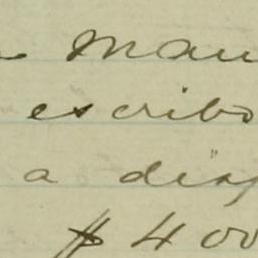 man
escribo
a dis
$ 400